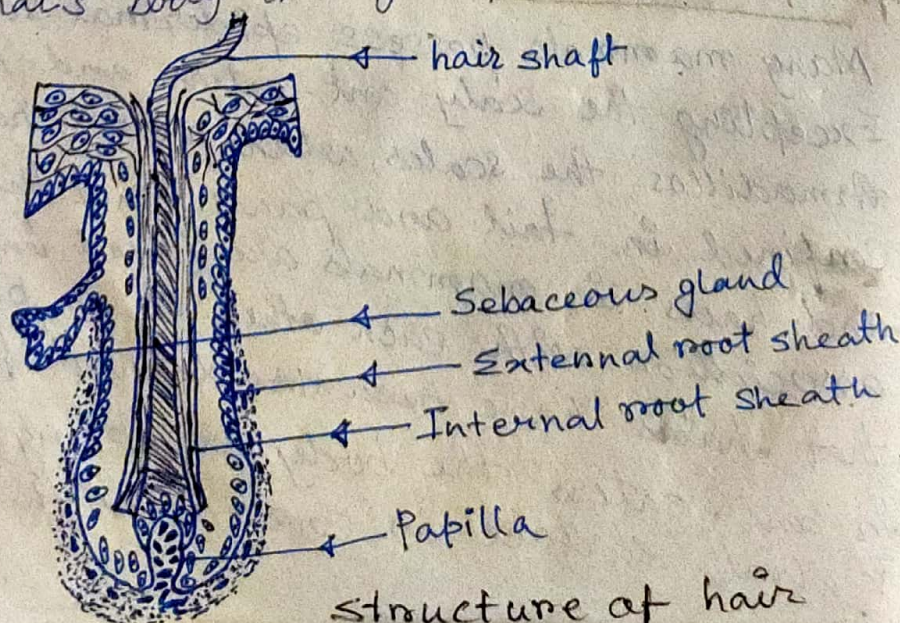 hair shaft
Sebaceous gland
Extennal root sheath
Internal root sheath
Papilla
structure of hair